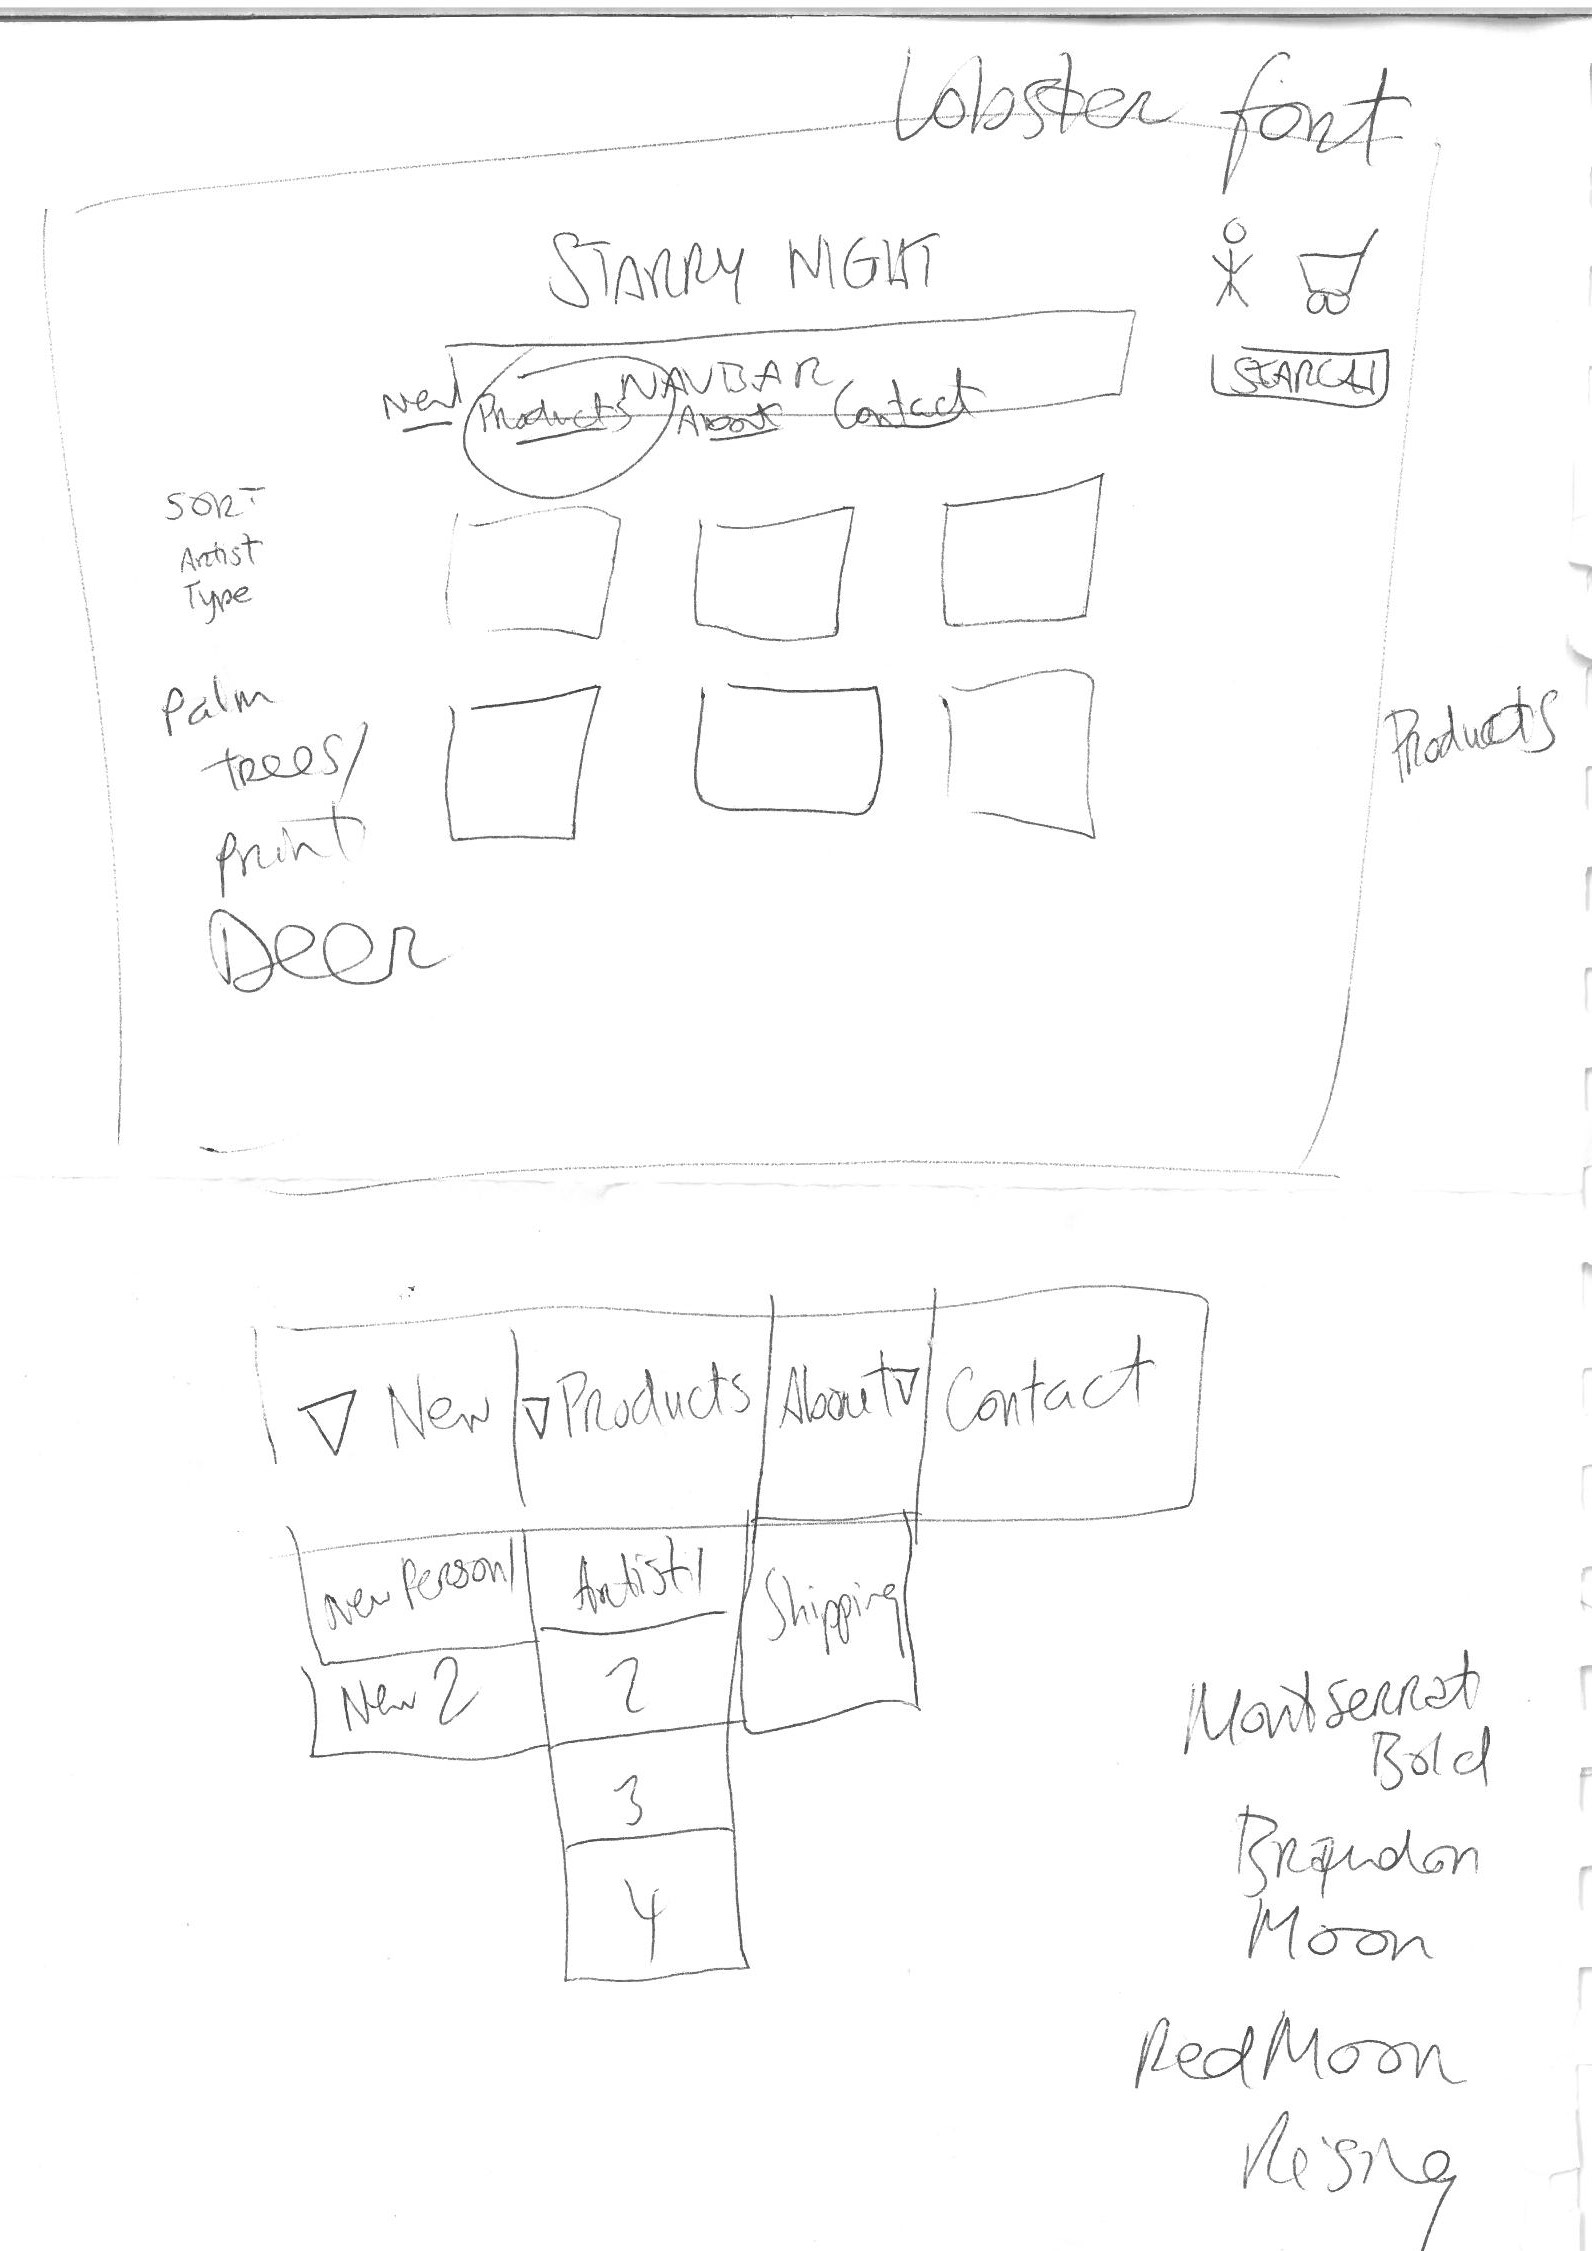 Lobster font
STARRY NIGHT
NAVBAR
New Products About Contact
SEARCH
SORT
Artist
Type
Palm
trees/
print
Deer
Products
New Products About Contact
New Person1 Artist1 Shipping
New 2 2
3
4
Montserrat
Bold
Brandon
Moon
Red Moon
Rising